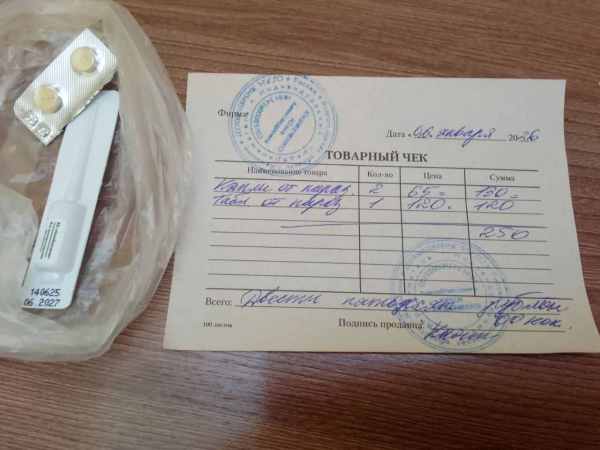 Фирма
Дата «06» января 2026
ТОВАРНЫЙ ЧЕК
Наименование товара Кол-во Цена Сумма
Капли от параз. 2 65= 130=
Табл от параз 1 120= 120
250
Всего: Двести пятьдесят рублей
00 коп.
100 листов Подпись продавца
140625
06 2027